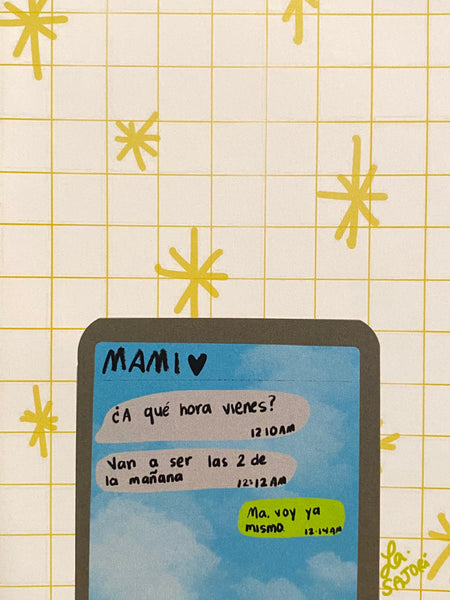 MAMI ♥
¿A qué hora vienes?
12:10 AM
Van a ser las 2 de
la mañana
12:12 AM
Ma. voy ya
mismo.
12:14 AM
La.
SATORi